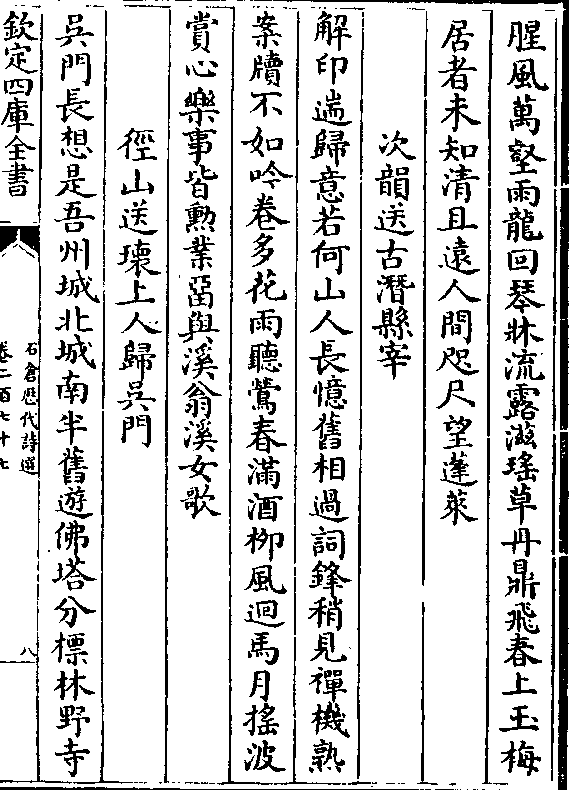 腥風萬壑雨龍回琴牀流露滋瑤草丹鼎飛春上玉梅
居者未知清且遠人間咫尺望蓬萊
次韻送古潛縣宰
解印遄歸意若何山人長憶舊相過詞鋒稍見禪機熟
案牘不如吟卷多花雨聽鶯春滿酒柳風迴馬月搖波
賞心樂事皆勲業畱與溪翁溪女歌
徑山送瓌上人歸吳門
吳門長想是吾州城北城南半舊遊佛塔分標林野寺
欽定四庫全書
石倉歷代詩選
卷二百七十七
八